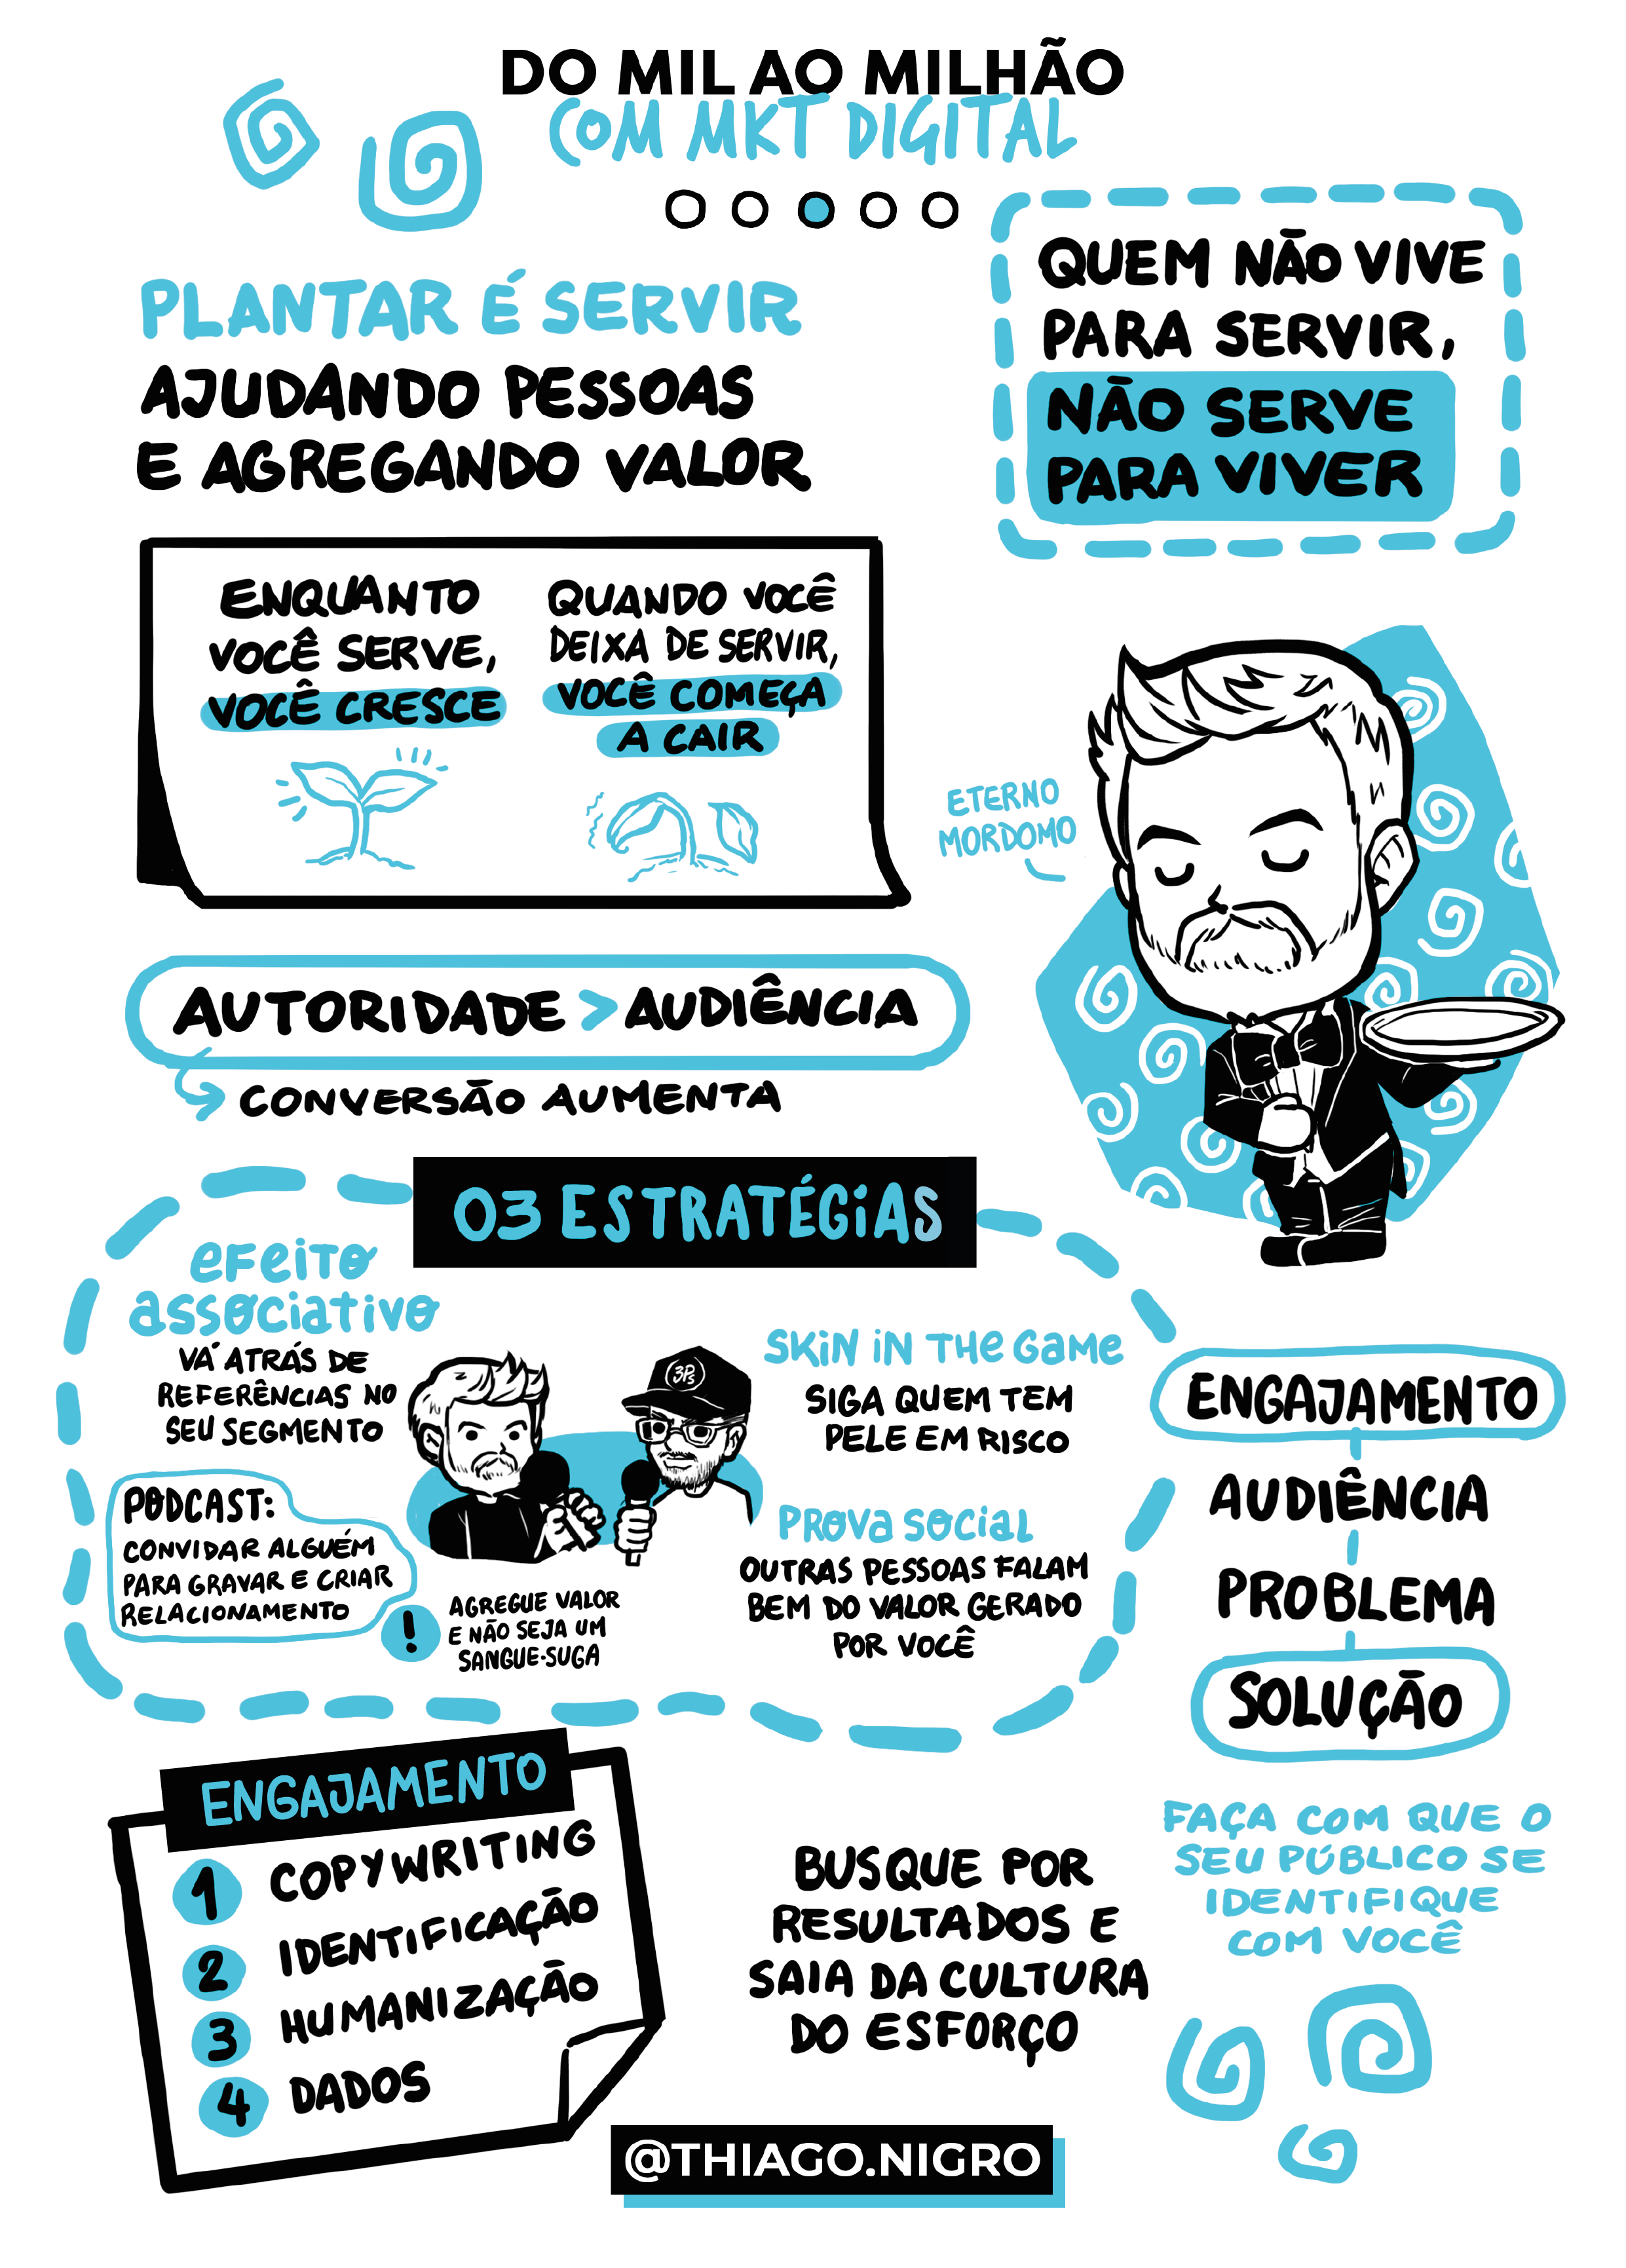 DO MIL AO MILHÃO
COM MKT DIGITAL
PLANTAR É SERVIR
AJUDANDO PESSOAS
E AGREGANDO VALOR
QUEM NÃO VIVE
PARA SERVIR,
NÃO SERVE
PARA VIVER
ENQUANTO
VOCÊ SERVE,
VOCÊ CRESCE
QUANDO VOCÊ
DEIXA DE SERVIR,
VOCÊ COMEÇA
A CAIR
ETERNO
MORDOMO
AUTORIDADE > AUDIÊNCIA
CONVERSÃO AUMENTA
03 ESTRATÉGIAS
EFEITO
ASSOCIATIVO
VÁ ATRÁS DE
REFERÊNCIAS NO
SEU SEGMENTO
PODCAST:
CONVIDAR ALGUÉM
PARA GRAVAR E CRIAR
RELACIONAMENTO
3Ps
!
AGREGUE VALOR
E NÃO SEJA UM
SANGUE-SUGA
SKIN IN THE GAME
SIGA QUEM TEM
PELE EM RISCO
PROVA SOCIAL
OUTRAS PESSOAS FALAM
BEM DO VALOR GERADO
POR VOCÊ
ENGAJAMENTO
AUDIÊNCIA
PROBLEMA
SOLUÇÃO
FAÇA COM QUE O
SEU PÚBLICO SE
IDENTIFIQUE
COM VOCÊ
ENGAJAMENTO
1 COPYWRITING
2 IDENTIFICAÇÃO
3 HUMANIZAÇÃO
4 DADOS
BUSQUE POR
RESULTADOS E
SAIA DA CULTURA
DO ESFORÇO
@THIAGO.NIGRO